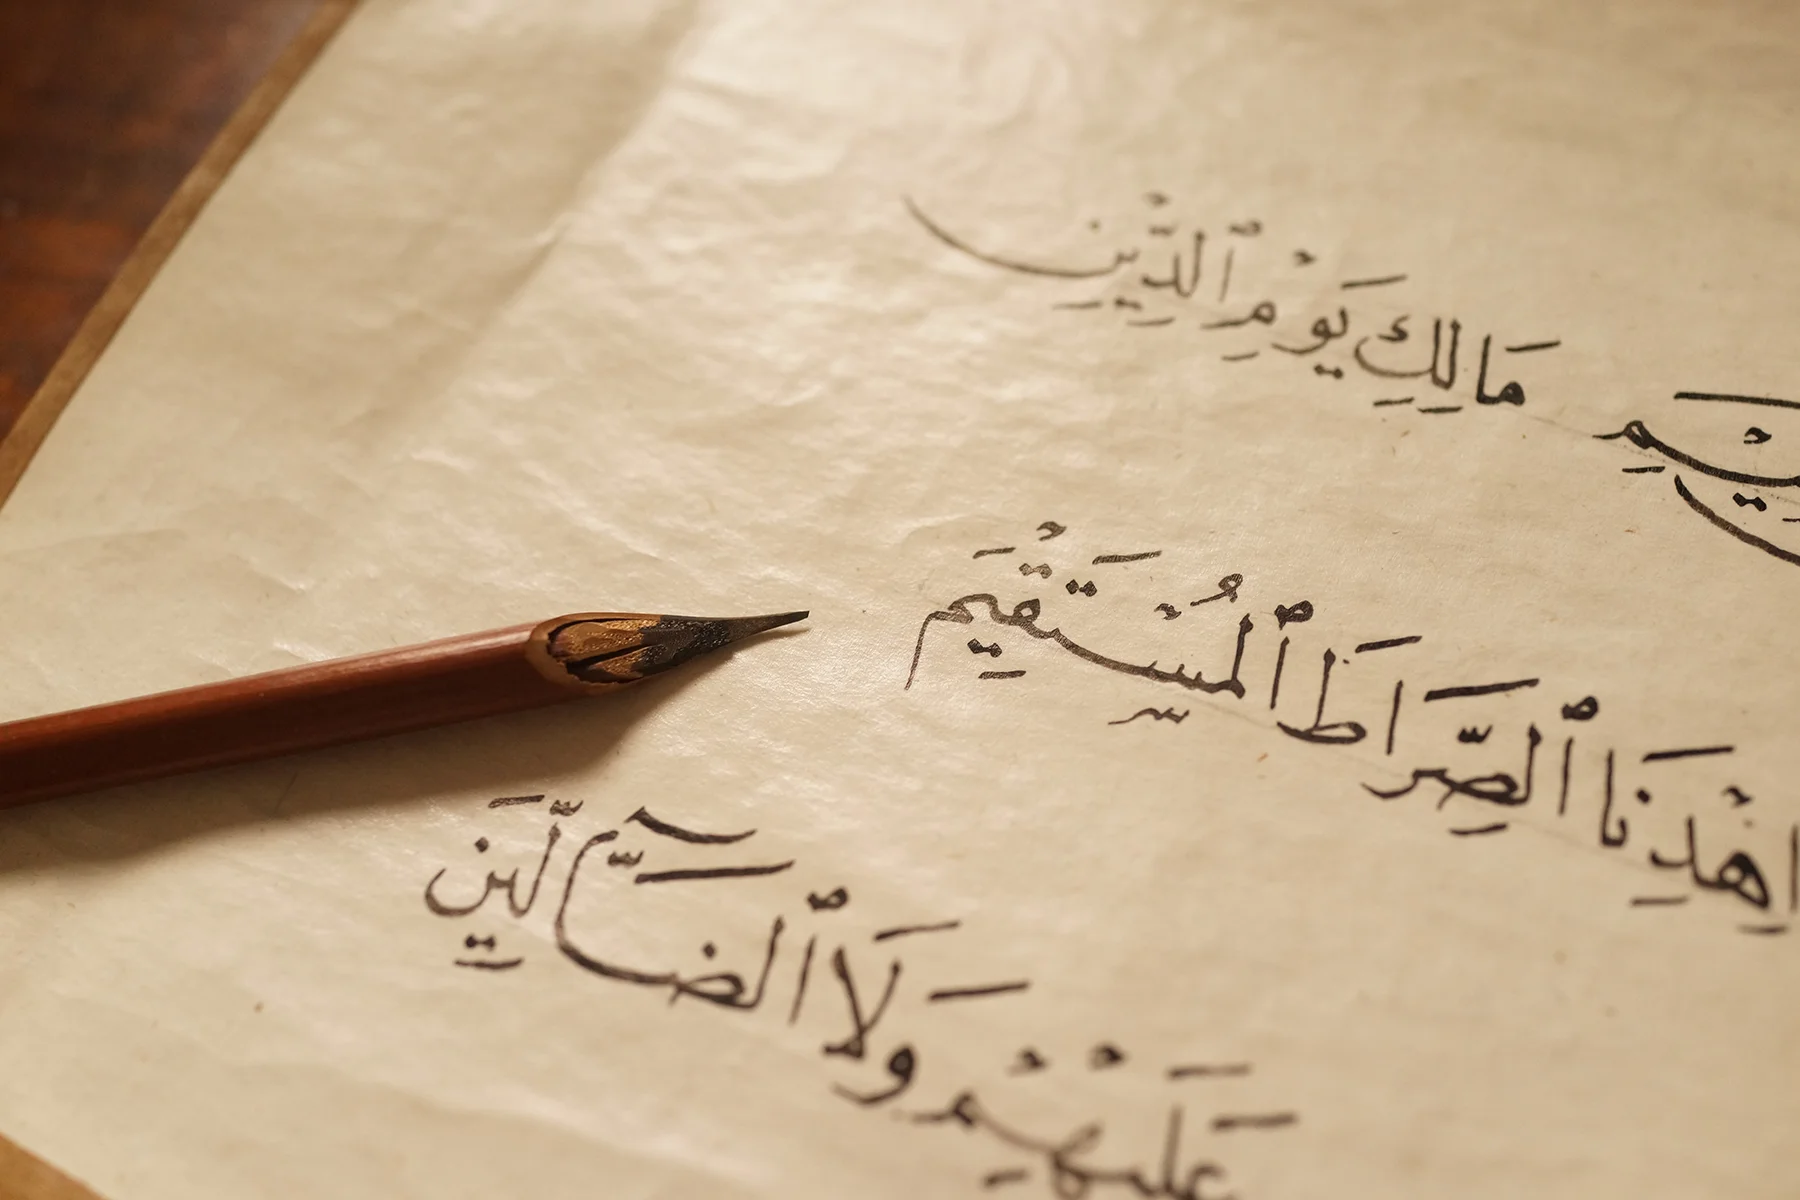 مَالِكِ يَوْمِ ٱلدِّينِ
اِهْدِنَا ٱلصِّرَاطَ ٱلْمُسْتَقِيمَ
عَلَيْهِمْ وَلَا ٱلضَّآلِّينَ